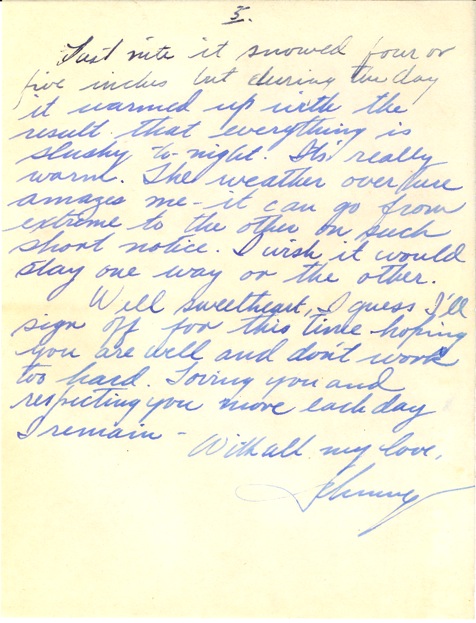 5.
Last nite it snowed four or
five inches but during the day
it warmed up with the
result that everything is
slushy to-night. It's really
warm. The weather over here
amazes me - it can go from
extreme to the other on such
short notice. I wish it would
stay one way or the other.
Well sweetheart, I guess I'll
sign off for this time hoping
you are well and don't work
too hard. Loving you and
respecting you more each day
I remain -
With all my love,
Johnny